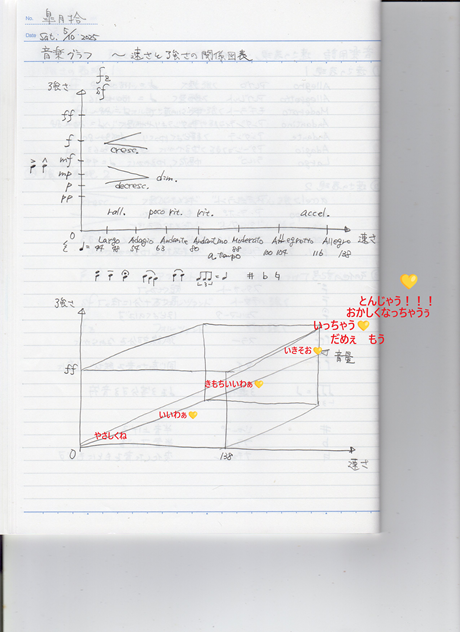 No. 皐月拾
Date Sat. 5/10 2025
音楽グラフ ～ 速さと強さの関係図表
強さ
fz
sf
ff
f
cresc.
mf
mp
dim.
p
decresc.
pp
rall. poco rit. rit. accel.
0 Largo Adagio Andante Andantino Moderato Allegretto Allegro 速さ
a tempo
♩= 54 63 80 100 104 116 138
♯ ♭ ♮
強さ
とんじゃう！！！
おかしくなっちゃうぅ
いっちゃう💛
だめぇ もう
いきそお💛
音量
ff
きもちいいわぁ💛
いいわぁ💛
やさしくね
0 138 速さ